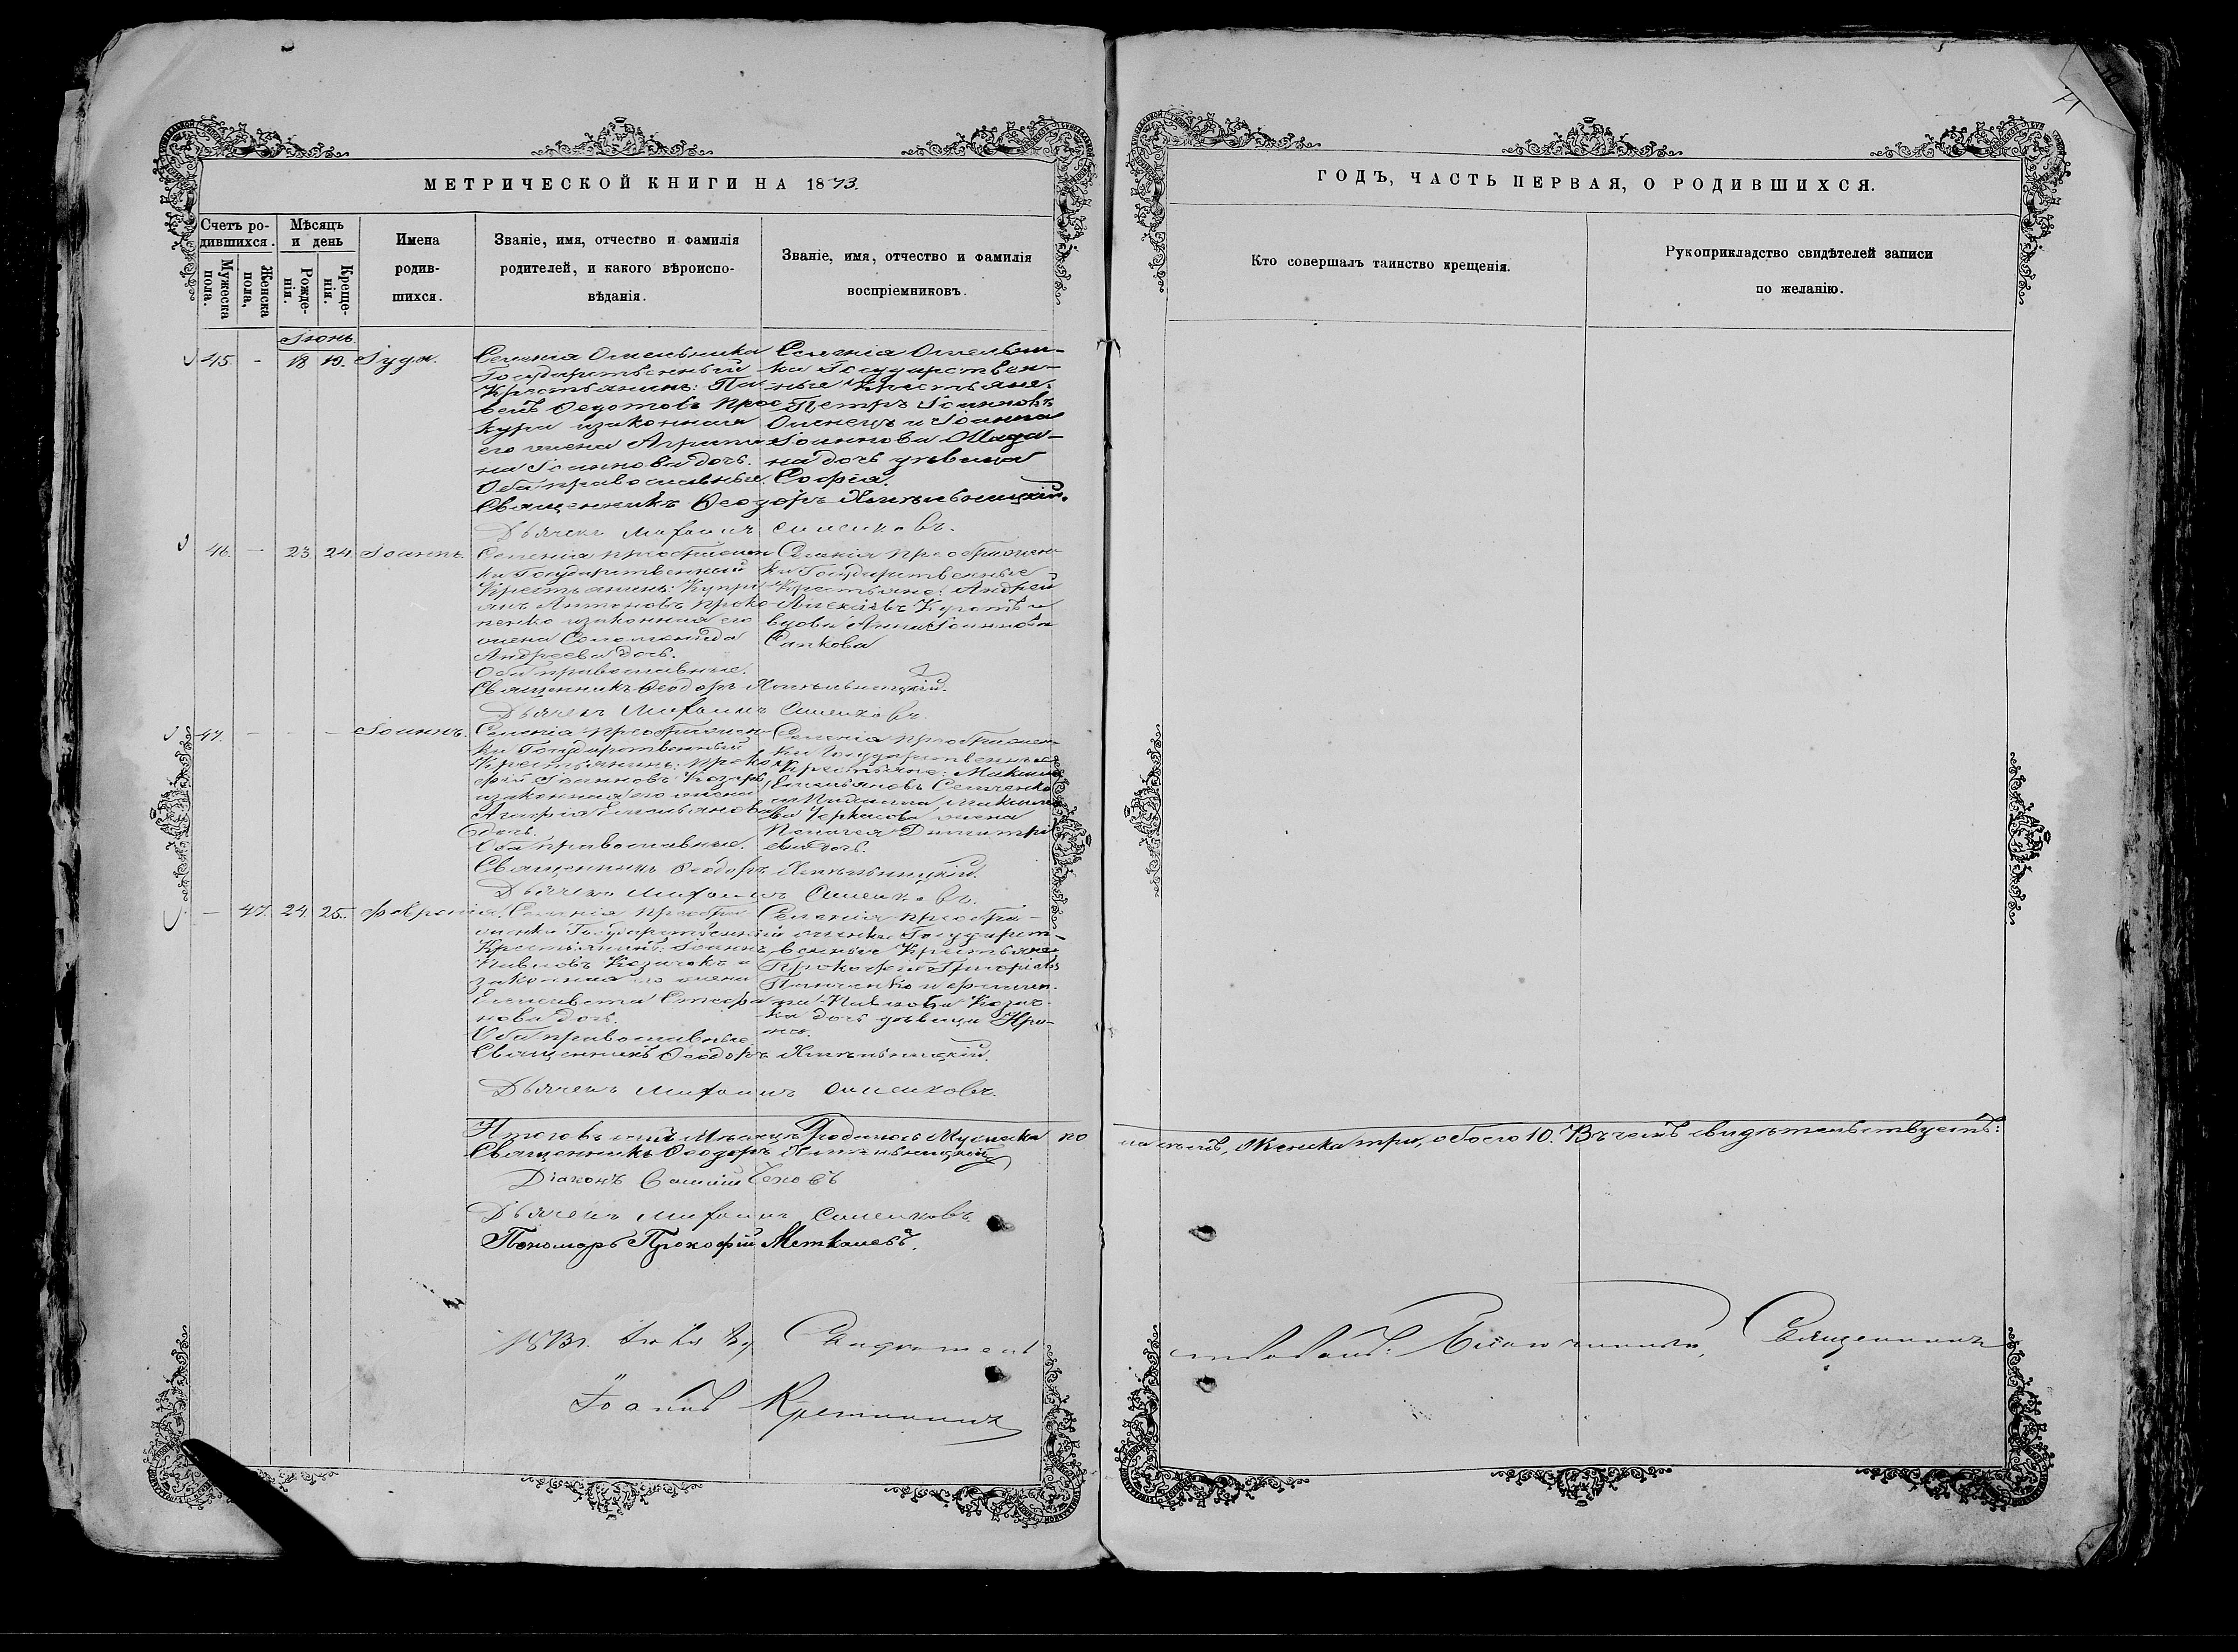 МЕТРИЧЕСКОЙ КНИГИ НА 1873.
Счетъ родившихся.
Мужеска пола.
Женска пола,
Мѣсяцъ и день
Рожденія.
Крещенія.
Имена родившихся.
Званіе, имя, отчество и фамилія родителей, и какого вѣроисповѣданія.
Званіе, имя, отчество и фамилія воспріемниковъ.
Іюнь
45. - 18 19. Іуда.
Селенія Омельника
Государственный
Крестьянинъ: Па
велъ Ѳедотовъ Прос
кура и законная
его жена Агрипи
на Іоаннова дочь.
Оба православные.
Селенія Омельни-
ка Государствен-
ные Крестьяне:
Петръ Іоанновъ
и Іоанна
Іоаннова
на дочь дѣвица
Софія.
Священникъ Ѳеодоръ Хмѣльницкій.
Дьячекъ Михаилъ Сименковъ.
46. - 23. 24. Іоаннъ.
Селенія Преображен
ки Государственный
Крестьянинъ: Купрі
анъ Антоновъ Проко
пенко и законная его
жена Соломонида
Андреева дочь.
Оба православные.
Селенія Преображен-
ки Государственные
Крестьяне: Андрей
Алексіевъ и
вдова Анна Іоаннова
Сапкова
Священникъ Ѳеодоръ Хмѣльницкій.
Дьячекъ Михаилъ Сименковъ.
47. - - - Іоаннъ.
Селенія Преображен-
ки Государственный
Крестьянинъ: Проко
фій Іоанновъ Козырь
и законная его жена
Агафія Емельянова
дочь.
Оба православные.
Селенія Преображен-
ки Государственные
Крестьяне: Максимъ
Емельяновъ Семченко
и
ва Черкасова жена
Пелагея Димитрі
ева дочь.
Священникъ Ѳеодоръ Хмѣльницкій.
Дьячекъ Михаилъ Сименковъ.
- 47. 24. 25. Февронія.
Селенія Преобра
женки Государственный
Крестьянинъ: Іоаннъ
Павловъ Козачокъ и
законная его жена
Елисавета Стефа
нова дочь.
Оба православные.
Селенія Преобра-
женки Государст-
венные Крестьяне:
Прокофій Григоріевъ
Панченко и
па Павлова Козач-
ка дочь дѣвица Иро-
нія.
Священникъ Ѳеодоръ Хмѣльницкій.
Дьячекъ Михаилъ Сименковъ.
Итого въ семъ Мѣсяцѣ Родилось Мужеска по
Священникъ Ѳеодоръ Хмѣльницкій
Діаконъ Чеховъ
Дьячекъ Михаилъ Сименковъ.
Пономарь Прокофій Меткалевъ.
1873 г.
Іоаннъ
ГОДЪ, ЧАСТЬ ПЕРВАЯ, О РОДИВШИХСЯ.
Кто совершалъ таинство крещенія.
Рукоприкладство свидѣтелей записи по желанію.
ла семь, Женска три, обоего 10. Въ чемъ свидѣтельствуетъ:
Благочинный, Священникъ